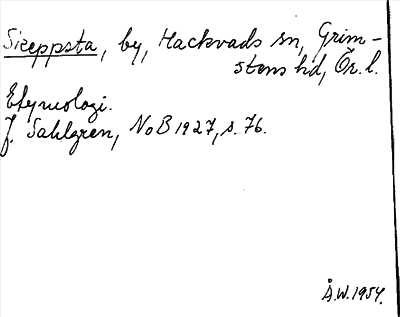 Skeppsta, by, Hackvads sn, Grim-
stens hd, Ör. l.
Etymologi.
J. Sahlgren, NoB 1927, s. 76.
Å.W. 1954.